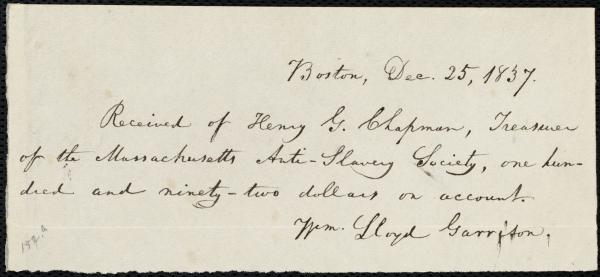 Boston, Dec. 25, 1837.
Received of Henry G. Chapman, Treasurer
of the Massachusetts Anti-Slavery Society, one hun-
dred and ninety-two dollars on account.
Wm. Lloyd Garrison.